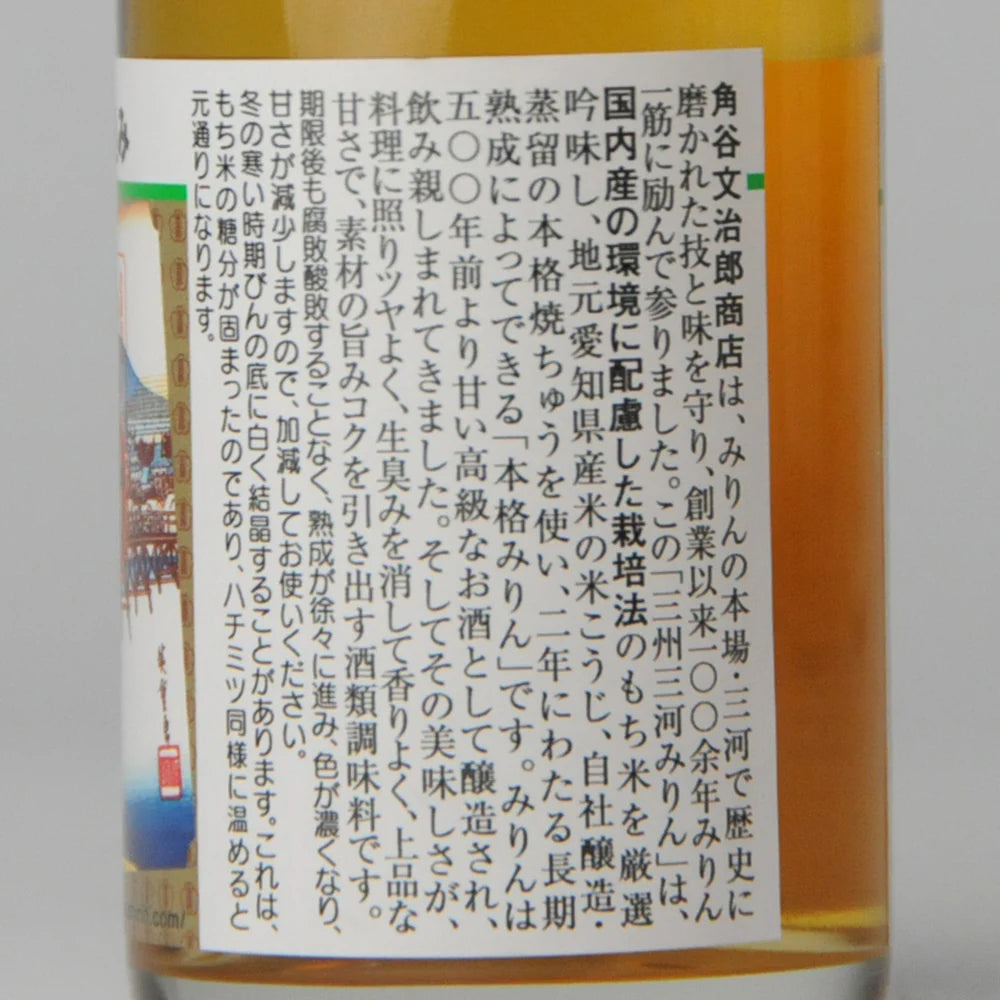 角谷文治郎商店は、みりんの本場・三河で歴史に
磨かれた技と味を守り、創業以来一〇〇余年みりん
一筋に励んで参りました。この「三州三河みりん」は、
国内産の環境に配慮した栽培法のもち米を厳選
吟味し、地元愛知県産米の米こうじ、自社醸造・
蒸留の本格焼ちゅうを使い、二年にわたる長期
熟成によってできる「本格みりん」です。みりんは
五〇〇年前より甘い高級なお酒として醸造され、
飲み親しまれてきました。そしてその美味しさが、
料理に照りツヤよく、生臭みを消して香りよく、上品な
甘さで、素材の旨みコクを引き出す酒類調味料です。
期限後も腐敗酸敗することなく、熟成が徐々に進み、色が濃くなり、
甘さが減少しますので、加減してお使いください。
冬の寒い時期びんの底に白く結晶することがあります。これは、
もち米の糖分が固まったのであり、ハチミツ同様に温めると
元通りになります。
み
.com/